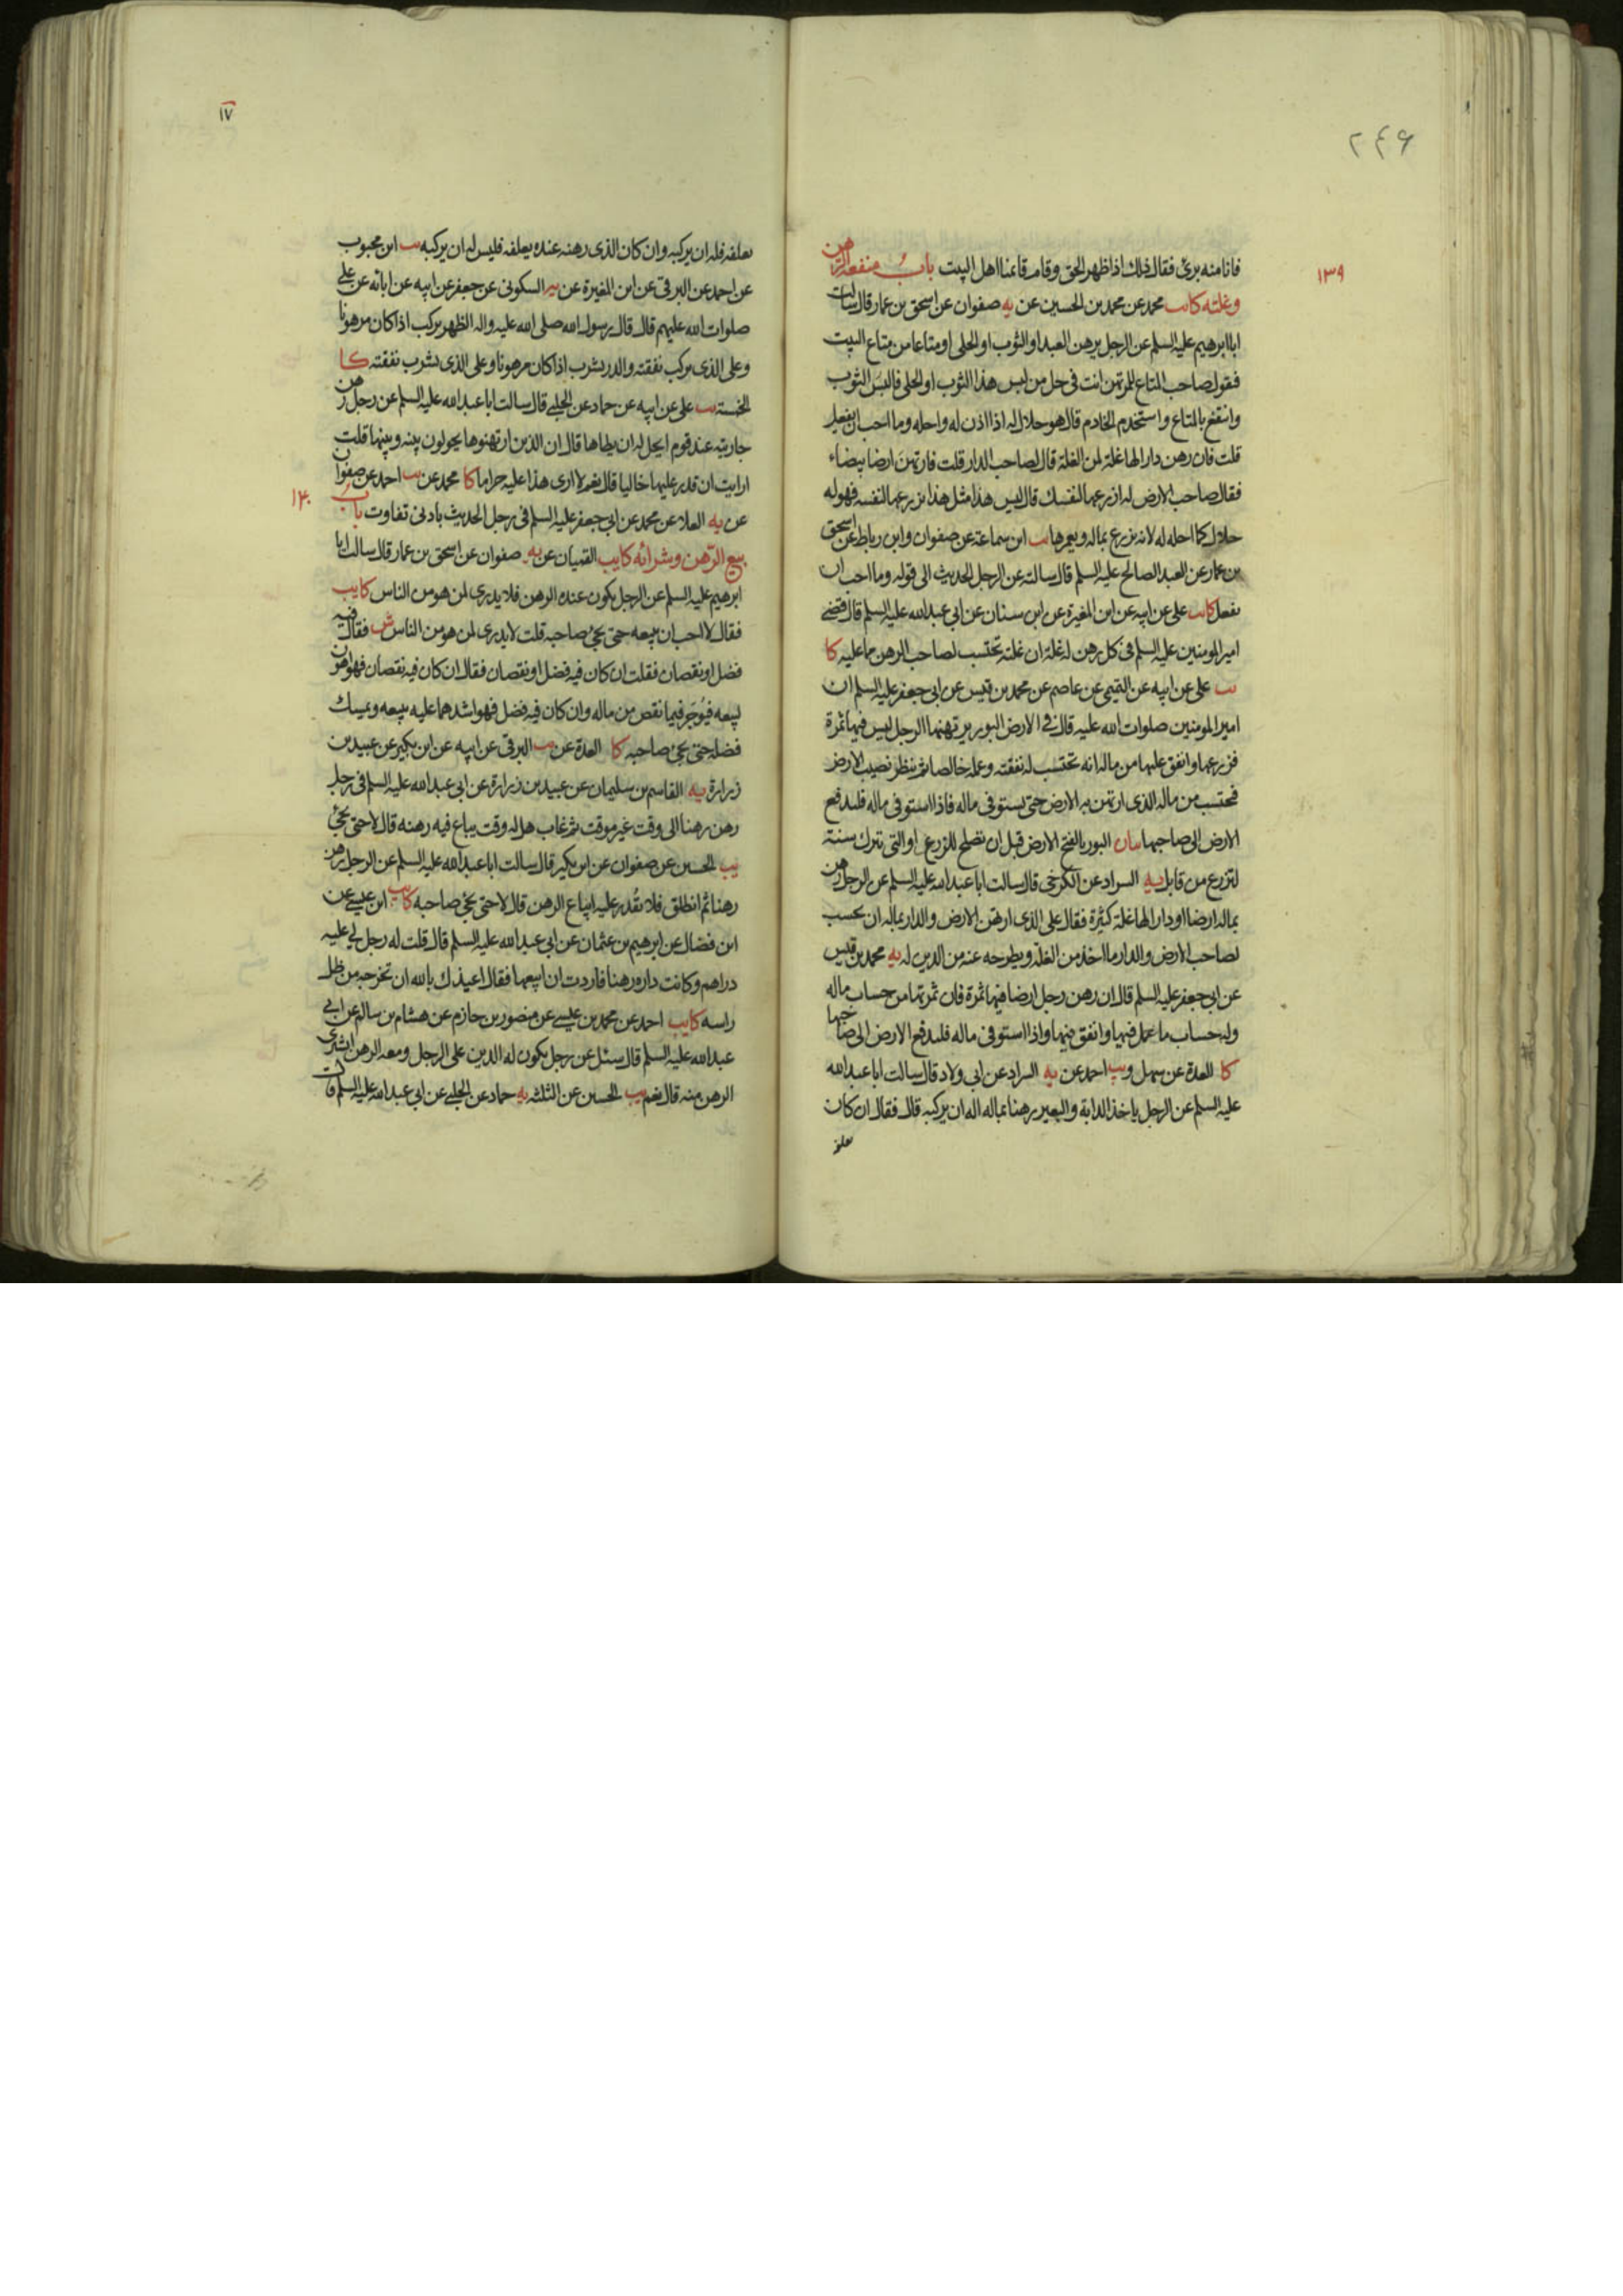 ٢٤٦
١٣٩
فانا منه برئ فقال ذلك اذا ظهر الحق وقام قائمنا اهل البيت باب منفعة الرهن
وغلته كا يب محمد عن محمد بن الحسين عن يه صفوان عن اسحق بن عمار قال سالت
ابا ابرهيم عليه السلم عن الرجل يرهن العبد او الثوب او الحلى او متاعا من متاع البيت
فيقول صاحب المتاع للمرتهن انت فى حل من لبس هذا الثوب او الحلى فالبس الثوب
وانتفع بالمتاع واستخدم الخادم قال هو حلال له اذا اذن له واحله وما احب ان يفعل
قلت فان رهن دارا لها غلة لمن الغلة قال لصاحب الدار قلت فارتهن ارضا بيضاء
فقال صاحب الارض له ازرعها لنفسك قال ليس هذا مثل هذا يزرعها لنفسه فهو له
حلال كما احله له لانه يزرع بماله ويعمرها يب ابن سماعة عن صفوان وابن رباط عن اسحق
بن عمار عن العبد الصالح عليه السلم قال سالته عن الرجل الحديث الى قوله وما احب ان
يفعل كا يب على عن ابيه عن ابن المغيرة عن ابن سنان عن ابى عبد الله عليه السلم قال قضى
امير المومنين عليه السلم فى كل رهن له غلة ان غلته تحتسب لصاحب الرهن مما عليه كا
يب على عن ابيه عن التميمى عن عاصم عن محمد بن قيس عن ابى جعفر عليه السلم ان
امير المومنين صلوات الله عليه قال فى الارض البور يرتهنها الرجل ليس فيها ثمرة
فزرعها وانفق عليها من ماله انه تحتسب له نفقته وعمله خالصا ثم ينظر نصيب الارض
فيحتسب من ماله الذى ارتهن به الارض حتى يستوفى ماله فاذا استوفى ماله فليدفع
الارض الى صاحبها بيان البور بالفتح الارض قبل ان تصلح للزرع او التى تترك سنة
لتزرع من قابل يه السراد عن الكرخى قال سالت ابا عبد الله عليه السلم عن الرجل رهن
بماله ارضا او دارا لها غلة كثيرة فقال على الذى ارتهن الارض والدار بماله ان يحسب
لصاحب الارض والدار ما اخذ من الغلة ويطرحه عنه من الدين له يه محمد بن قيس
عن ابى جعفر عليه السلم قال ان رهن رجل ارضا فيها ثمرة فان ثمرتها من حساب ماله
وله حساب ما عمل فيها وانفق فيها واذا استوفى ماله فليدفع الارض الى صاحبها
كا العدة عن سهل و يب احمد عن يه السراد عن ابى ولاد قال سالت ابا عبد الله
عليه السلم عن الرجل ياخذ الدابة والبعير رهنا بماله اله ان يركبه قال فقال ان كان
يعلفه
١٧
يعلفه فله ان يركبه وان كان الذى رهنه عنده يعلفه فليس له ان يركبه يب ابن محبوب
عن احمد عن البرقى عن ابن المغيرة عن يه السكونى عن جعفر عن ابيه عن ابائه عن على
صلوات الله عليهم قال قال رسول الله صلى الله عليه واله الظهر يركب اذا كان مرهونا
وعلى الذى يركب نفقته والدر يشرب اذا كان مرهونا وعلى الذى يشرب نفقته كا
الخمسة يب على عن ابيه عن حماد عن الحلبى قال سالت ابا عبد الله عليه السلم عن رجل رهن
جاريته عند قوم ايحل له ان يطاها قال ان الذين ارتهنوها يحولون بينه وبينها قلت
ارايت ان قدر عليها خاليا قال نعم لا ارى هذا عليه حراما كا محمد عن يب احمد عن صفوان
عن يه العلا عن محمد عن ابى جعفر عليه السلم فى رجل الحديث بادنى تفاوت باب
١٤٠
بيع الرهن وشرائه كا يب القميان عن يه صفوان عن اسحق بن عمار قال سالت ابا
ابرهيم عليه السلم عن الرجل يكون عنده الرهن فلا يدرى لمن هو من الناس كا يب
فقال لا احب ان يبيعه حتى يجئ صاحبه قلت لا يدرى لمن هو من الناس ش فقال فيه
فضل او نقصان فقلت ان كان فيه فضل او نقصان فقال ان كان فيه نقصان فهو اهون
يبيعه فيوجر فيما نقص من ماله وان كان فيه فضل فهو اشدهما عليه يبيعه ويمسك
فضله حتى يجئ صاحبه كا العدة عن يب البرقى عن ابيه عن ابن بكير عن عبيد بن
زرارة يه القاسم بن سليمان عن عبيد بن زرارة عن ابى عبد الله عليه السلم فى رجل
رهن رهنا الى وقت غير موقت ثم غاب هل له وقت يباع فيه رهنه قال لا حتى يجئ
يب الحسين عن صفوان عن ابن بكير قال سالت ابا عبد الله عليه السلم عن الرجل رهن
رهنا ثم انطلق فلا يقدر عليه ايباع الرهن قال لا حتى يجئ صاحبه كا يب ابن عيسى عن
ابن فضال عن ابرهيم بن عثمان عن ابى عبد الله عليه السلم قال قلت له رجل لى عليه
دراهم وكانت داره رهنا فاردت ان ابيعها فقال اعيذك بالله ان تخرجه من ظل
راسه كا يب احمد عن محمد بن عيسى عن منصور بن حازم عن هشام بن سالم عن ابى
عبد الله عليه السلم قال سئل عن رجل يكون له الدين على الرجل ومعه الرهن ايشترى
الرهن منه قال نعم يب الحسين عن الثلثة يه حماد عن الحلبى عن ابى عبد الله عليه السلم فى